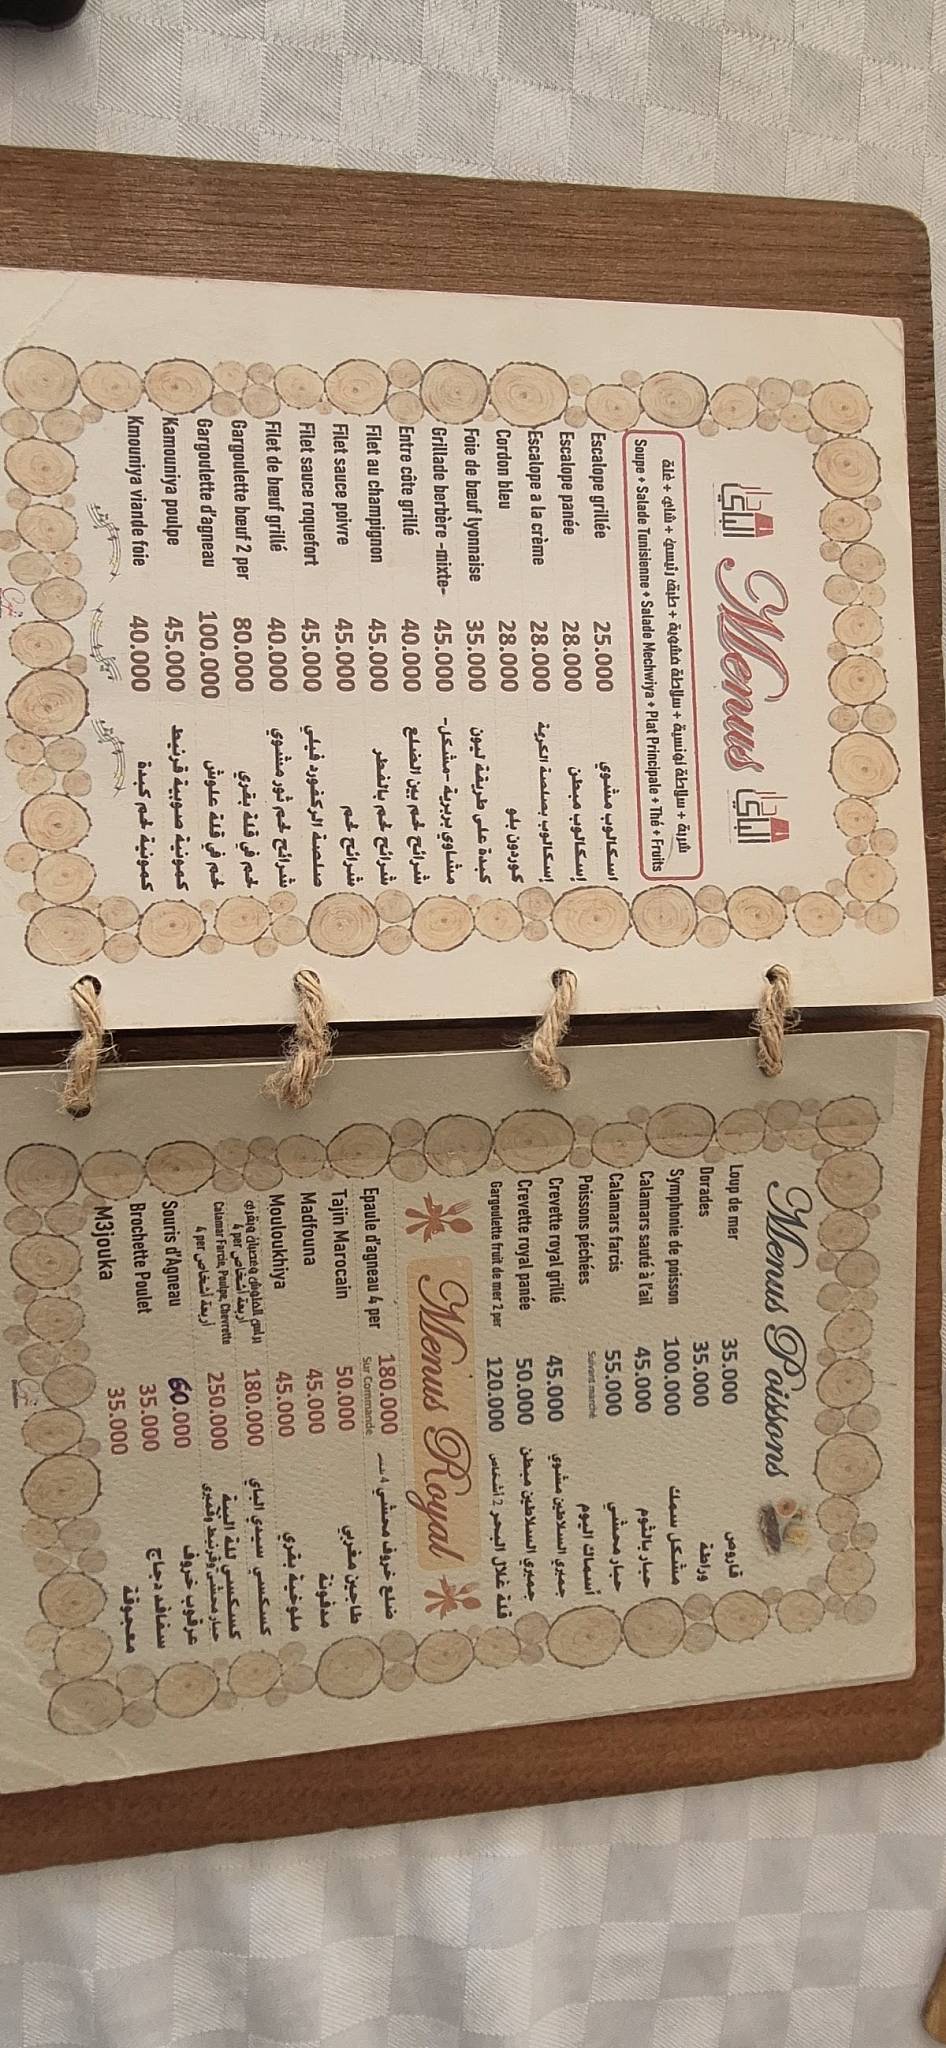 دار الباي Menus دار الباي
شربة + سلاطة تونسية + سلاطة مشوية + طبق رئيسي + شاي + غلة
Soupe + Salade Tunisienne + Salade Mechwiya + Plat Principale + Thé + Fruits
Escalope grillée 25.000 اسكالوب مشوي
Escalope panée 28.000 إسكالوب مبطن
Escalope a la crème 28.000 إسكالوب بصلصة الكريمة
Cordon bleu 28.000 كوردون بلو
Foie de bœuf lyonnaise 35.000 كبدة على طريقة ليون
Grillade berbère -mixte- 45.000 مشاوي بربرية -مشكل-
Entre côte grillé 40.000 شرائح لحم بين الضلع
Filet au champignon 45.000 شرائح لحم بالفطر
Filet sauce poivre 45.000 شرائح لحم
Filet sauce roquefort 45.000 صلصة الركفورد فيلي
Filet de bœuf grillé 40.000 شرائح لحم ثور مشوي
Gargoulette bœuf 2 per 80.000 لحم في قلة بقري
Gargoulette d'agneau 100.000 لحم في قلة علوش
Kamouniya poulpe 45.000 كمونية صوبية قرنيط
Kmouniya viande foie 40.000 كمونية لحم كبدة
Menus Poissons
Loup de mer 35.000 قاروص
Dorades 35.000 وراطة
Symphonie de poisson 100.000 مشكل سمك
Calamars sauté à l'ail 45.000 حبار بالثوم
Calamars farcis 55.000 حبار محشي
Poissons péchées Suivant marché أسماك اليوم
Crevette royal grillé 45.000 جمبري السلاطين مشوي
Crevette royal panée 50.000 جمبري السلاطين مبطن
Gargoulette fruit de mer 2 per 120.000 قلة غلال البحر 2 أشخاص
Menus Royal
Epaule d'agneau 4 per 180.000 ضلع خروف محشي 4
Sur Commande
Tajin Marocain 50.000 طاجين مغربي
Madfouna 45.000 مدفونة
Mouloukhiya 45.000 ملوخية بقري
4 per أربعة أشخاص 180.000 كسكسي سيدي الباي
Calamar Farcie, Poulpe, Chevrette 250.000 كسكسي للة البية
4 per أربعة أشخاص حبار محشي وقرنيط وقمبري
Souris d'Agneau 60.000 عرقوب خروف
Brochette Poulet 35.000 سفافد دجاج
M3jouka 35.000 معجوقة